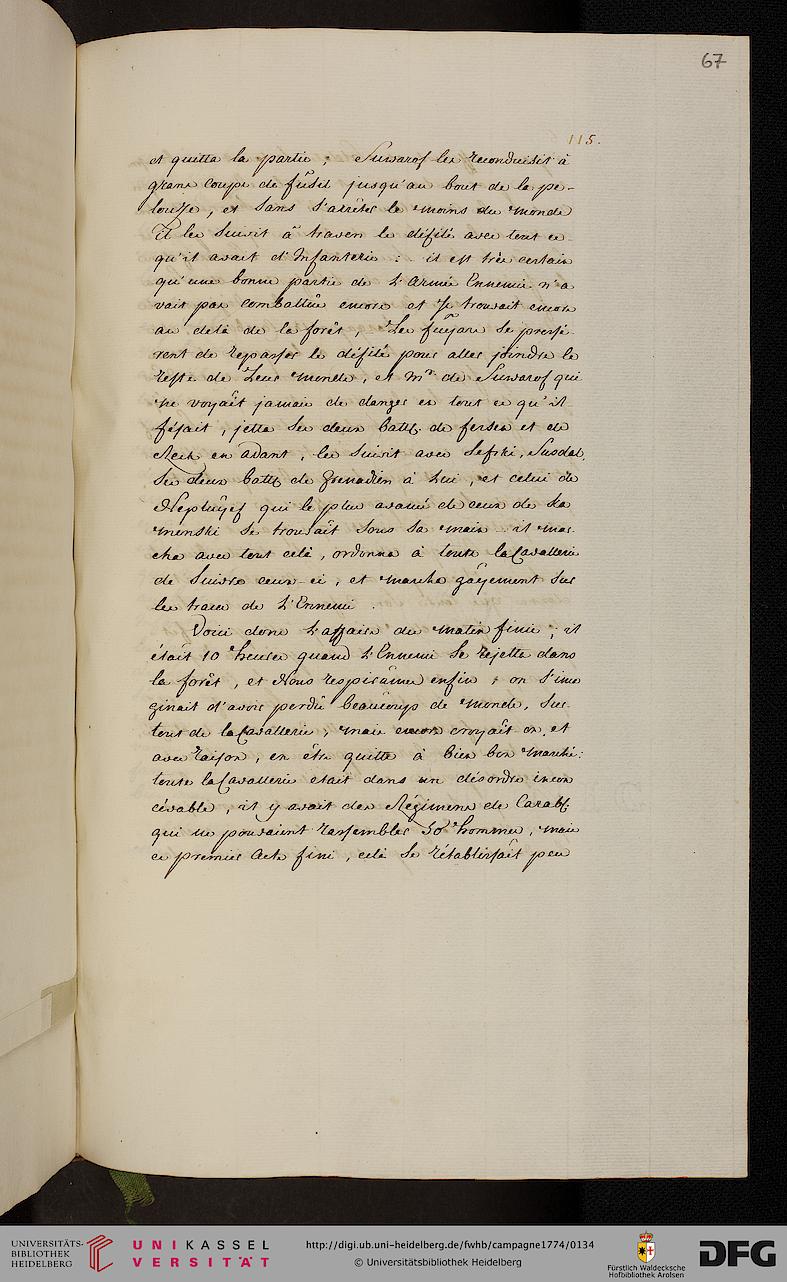 67
115.
et quitta la partie ; Suwarof les reconduisit à
grans coups de fusil jusqu'au bout de la pe-
louse, et sans s'arrêter le moins du monde
il les suivit à travers le défilé avec tout ce
qu'il avait d'Infanterie : il est très certain
qu'une bonne partie de l'armée Ennemie n'a
vait pas combattue encore et se trouvait encore
au delà de la forêt, Les fuijans se pressé-
rent de repasser le défilé pour aller joindre le
reste de Leur monde, et Mr. de Suwarof qui
ne voyait jamais de danger en tout ce qu'il
fésait, jetta ses deux batt. de fersen et de
Rek en avant, les suivit avec Sefski, Susdal,
ses deux batt. de Grenadiers à Lui, et celui de
Nepluÿef qui le plus avancé de ceux de Ka
menski se trouvait sous sa main : il mar
cha avec tout celà, ordonna à toute la Cavallerie
de suivre ceux-ci, et marcha gaÿement sur
les traces de l'Ennemi.
Voici donc l'affaire du matin finie ; il
était 10 heures quand l'Ennemi se rejetta dans
la forêt, et Nous respirâmes enfin : on s'ima
ginait d'avoir perdû beaucoup de monde, sur
tout de la Cavallerie, mais encore croyait on, et
avec raison, en être quitte à bien bon marché :
toute la Cavallerie etait dans un désordre incon
cévable, il y avait des Régimens de Carab.
qui ne pouvaient rassembler 50 hommes, mais
ce premier Acte fini, celà se rétablissait peu
UNIVERSITÄTS-
BIBLIOTHEK
HEIDELBERG
UNIKASSEL
VERSITÄT
http://digi.ub.uni-heidelberg.de/fwhb/campagne1774/0134
© Universitätsbibliothek Heidelberg
Fürstlich Waldecksche
Hofbibliothek Arolsen
DFG